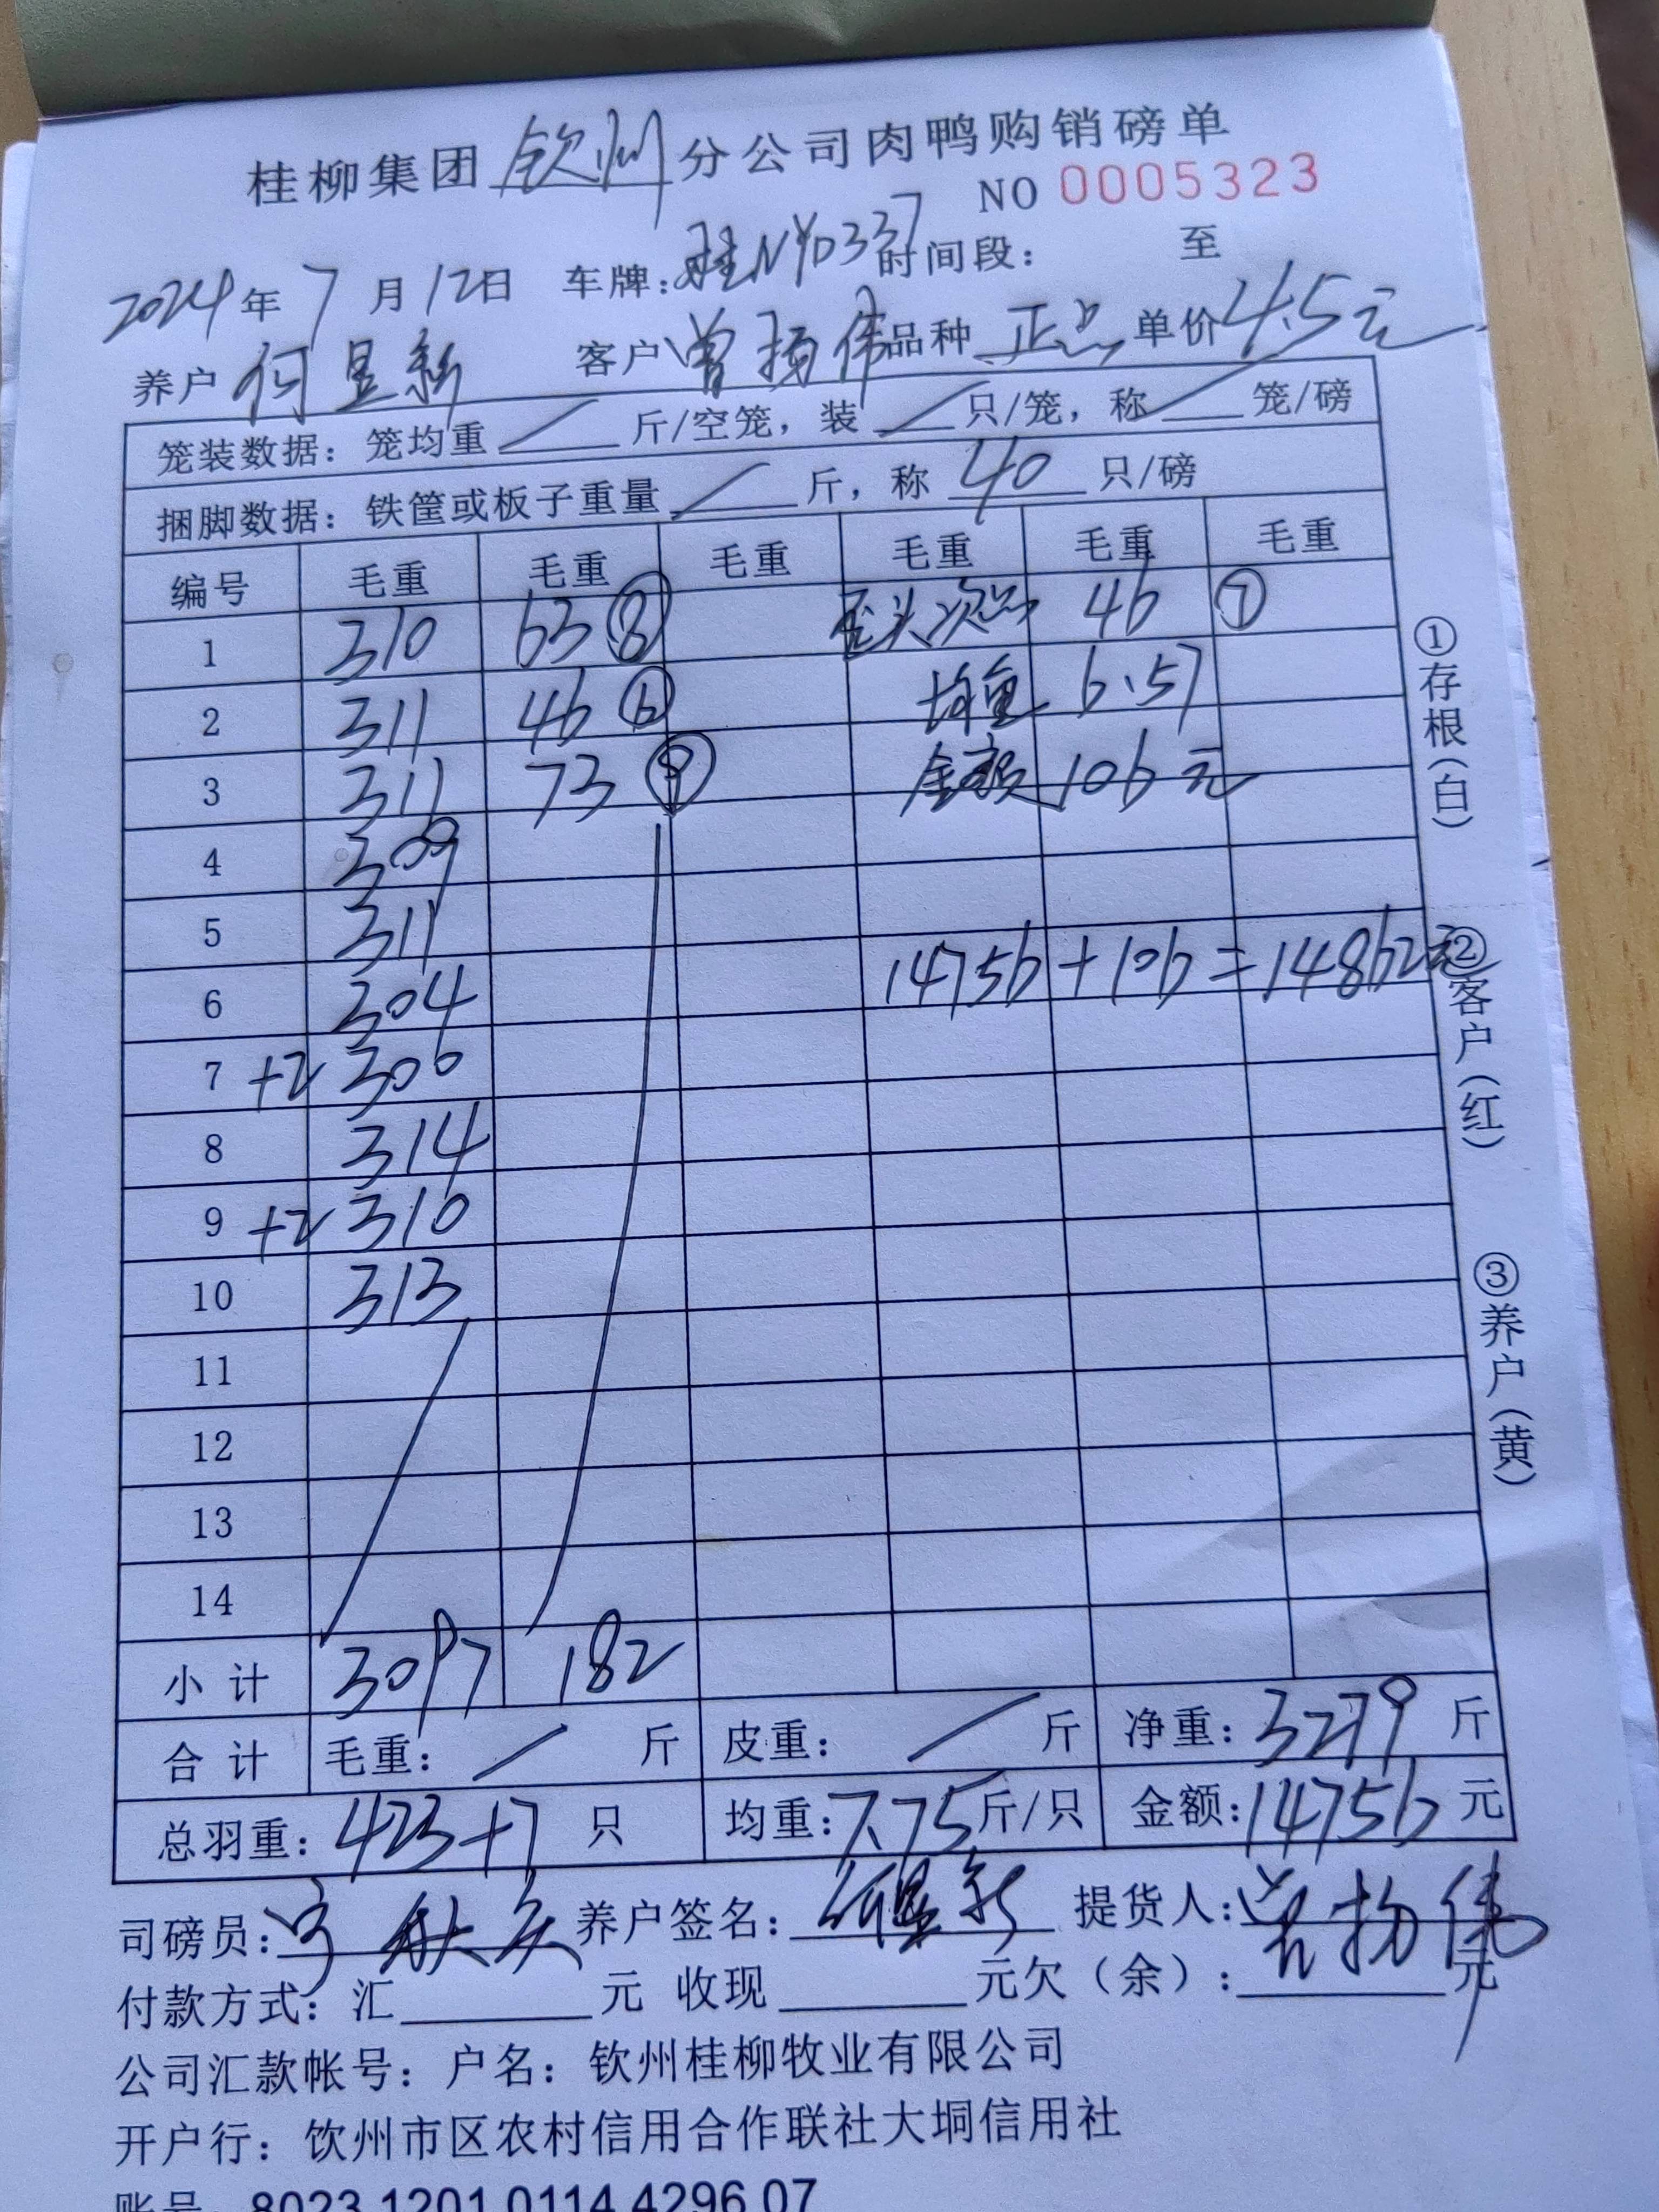 桂柳集团钦州分公司肉鸭购销磅单
NO 0005323
2024年7月12日 车牌:桂NY0337 时间段: 至
养户 何昱新 客户 曾扬伟 品种 正品 单价 4.5元
笼装数据: 笼均重 / 斤/空笼, 装 / 只/笼, 称 / 笼/磅
捆脚数据: 铁筐或板子重量 / 斤, 称 40 只/磅
编号 毛重 毛重 毛重 毛重 毛重 毛重
1 310 63 ⑧ 歪头次品 46 ⑦
2 311 46 ⑥ 均重 6.57
3 311 73 ⑨ 金额 106元
4 309
5 311 14756+106=14862元
6 304
7 +2 306
8 314
9 +2 310
10 313
11
12
13
14
小计 3097 182
合计 毛重: / 斤 皮重: / 斤 净重: 3279 斤
总羽重: 423+7 只 均重: 7.75 斤/只 金额: 14756 元
司磅员: 养户签名: 何昱新 提货人: 曾扬伟
付款方式: 汇 元 收现 元欠(余): 元
公司汇款帐号: 户名: 钦州桂柳牧业有限公司
开户行: 钦州市区农村信用合作联社大垌信用社
账号: 8023 1201 0114 4296 07
①存根(白)
②客户(红)
③养户(黄)